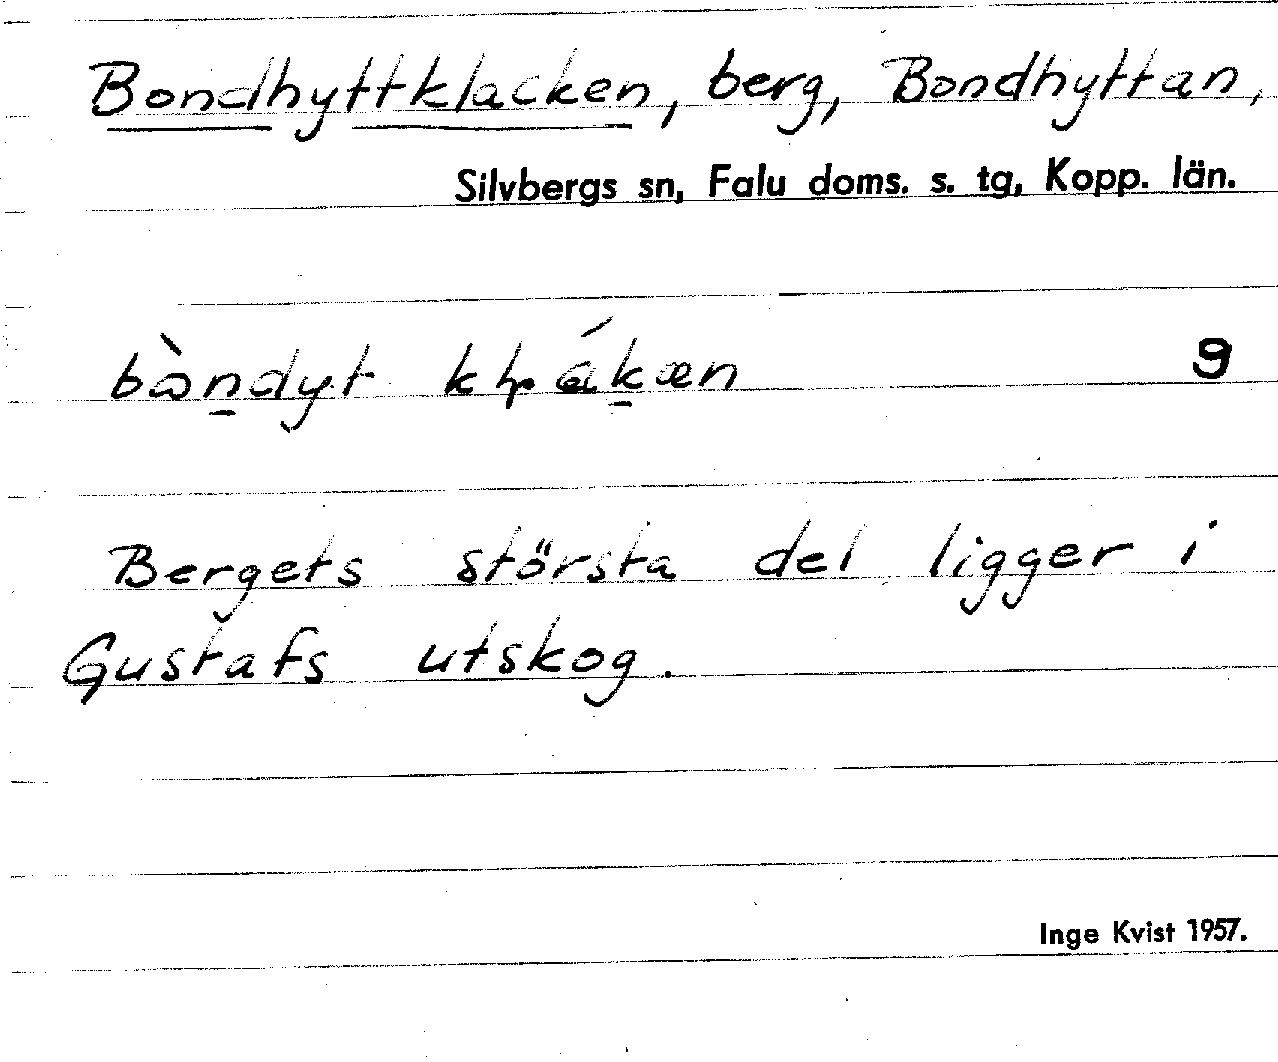 Bondhyttklacken, berg, Bondhyttan,
Silvbergs sn, Falu doms. s. tg, Kopp. län.
9
Bergets största del ligger i
Gustafs utskog.
Inge Kvist 1957.